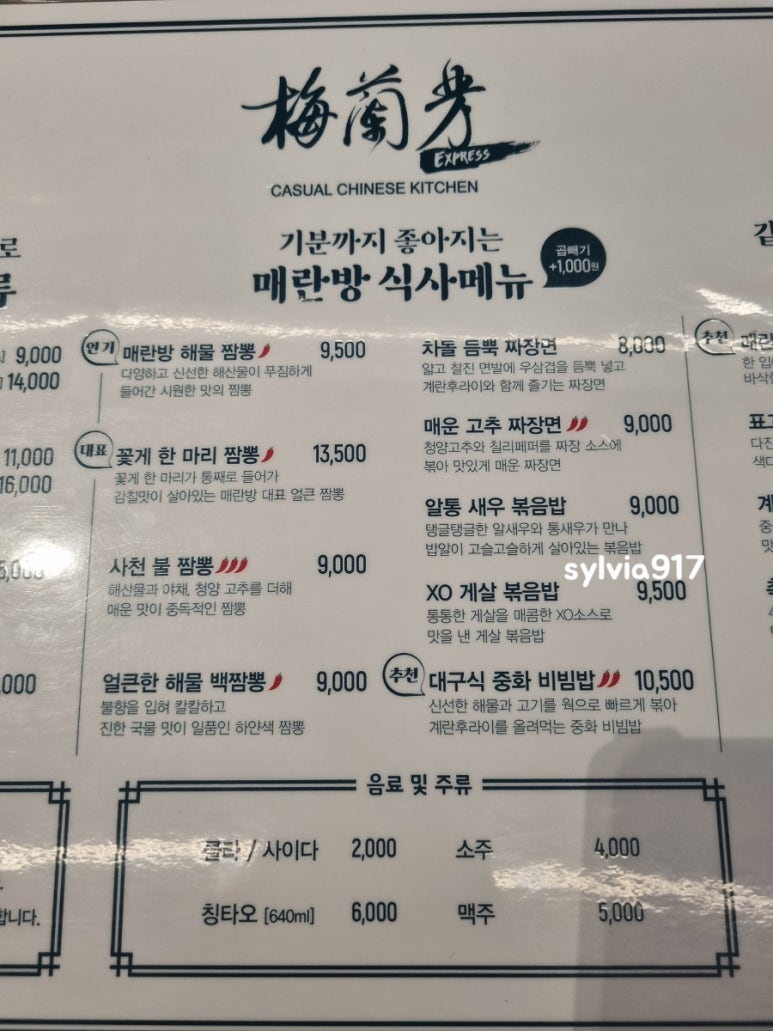 梅蘭芳
EXPRESS
CASUAL CHINESE KITCHEN
기분까지 좋아지는
매란방 식사메뉴
곱빼기
+1,000원
로
류
9,000
14,000
11,000
16,000
5,000
,000
합니다.
인기
매란방 해물 짬뽕 9,500
다양하고 신선한 해산물이 푸짐하게
들어간 시원한 맛의 짬뽕
대표
꽃게 한 마리 짬뽕 13,500
꽃게 한 마리가 통째로 들어가
감칠맛이 살아있는 매란방 대표 얼큰 짬뽕
사천 불 짬뽕 9,000
해산물과 야채, 청양 고추를 더해
매운 맛이 중독적인 짬뽕
얼큰한 해물 백짬뽕 9,000
불향을 입혀 칼칼하고
진한 국물 맛이 일품인 하얀색 짬뽕
차돌 듬뿍 짜장면 8,000
얇고 찰진 면발에 우삼겹을 듬뿍 넣고
계란후라이와 함께 즐기는 짜장면
매운 고추 짜장면 9,000
청양고추와 칠리페퍼를 짜장 소스에
볶아 맛있게 매운 짜장면
알통 새우 볶음밥 9,000
탱글탱글한 알새우와 통새우가 만나
밥알이 고슬고슬하게 살아있는 볶음밥
sylvia917
XO 게살 볶음밥 9,500
통통한 게살을 매콤한 XO소스로
맛을 낸 게살 볶음밥
추천
대구식 중화 비빔밥 10,500
신선한 해물과 고기를 웍으로 빠르게 볶아
계란후라이를 올려먹는 중화 비빔밥
추천
매란
한 입
바삭한
표고
다진
색다
계
중
맛
음료 및 주류
콜라 / 사이다 2,000
소주 4,000
칭타오 [640ml] 6,000
맥주 5,000